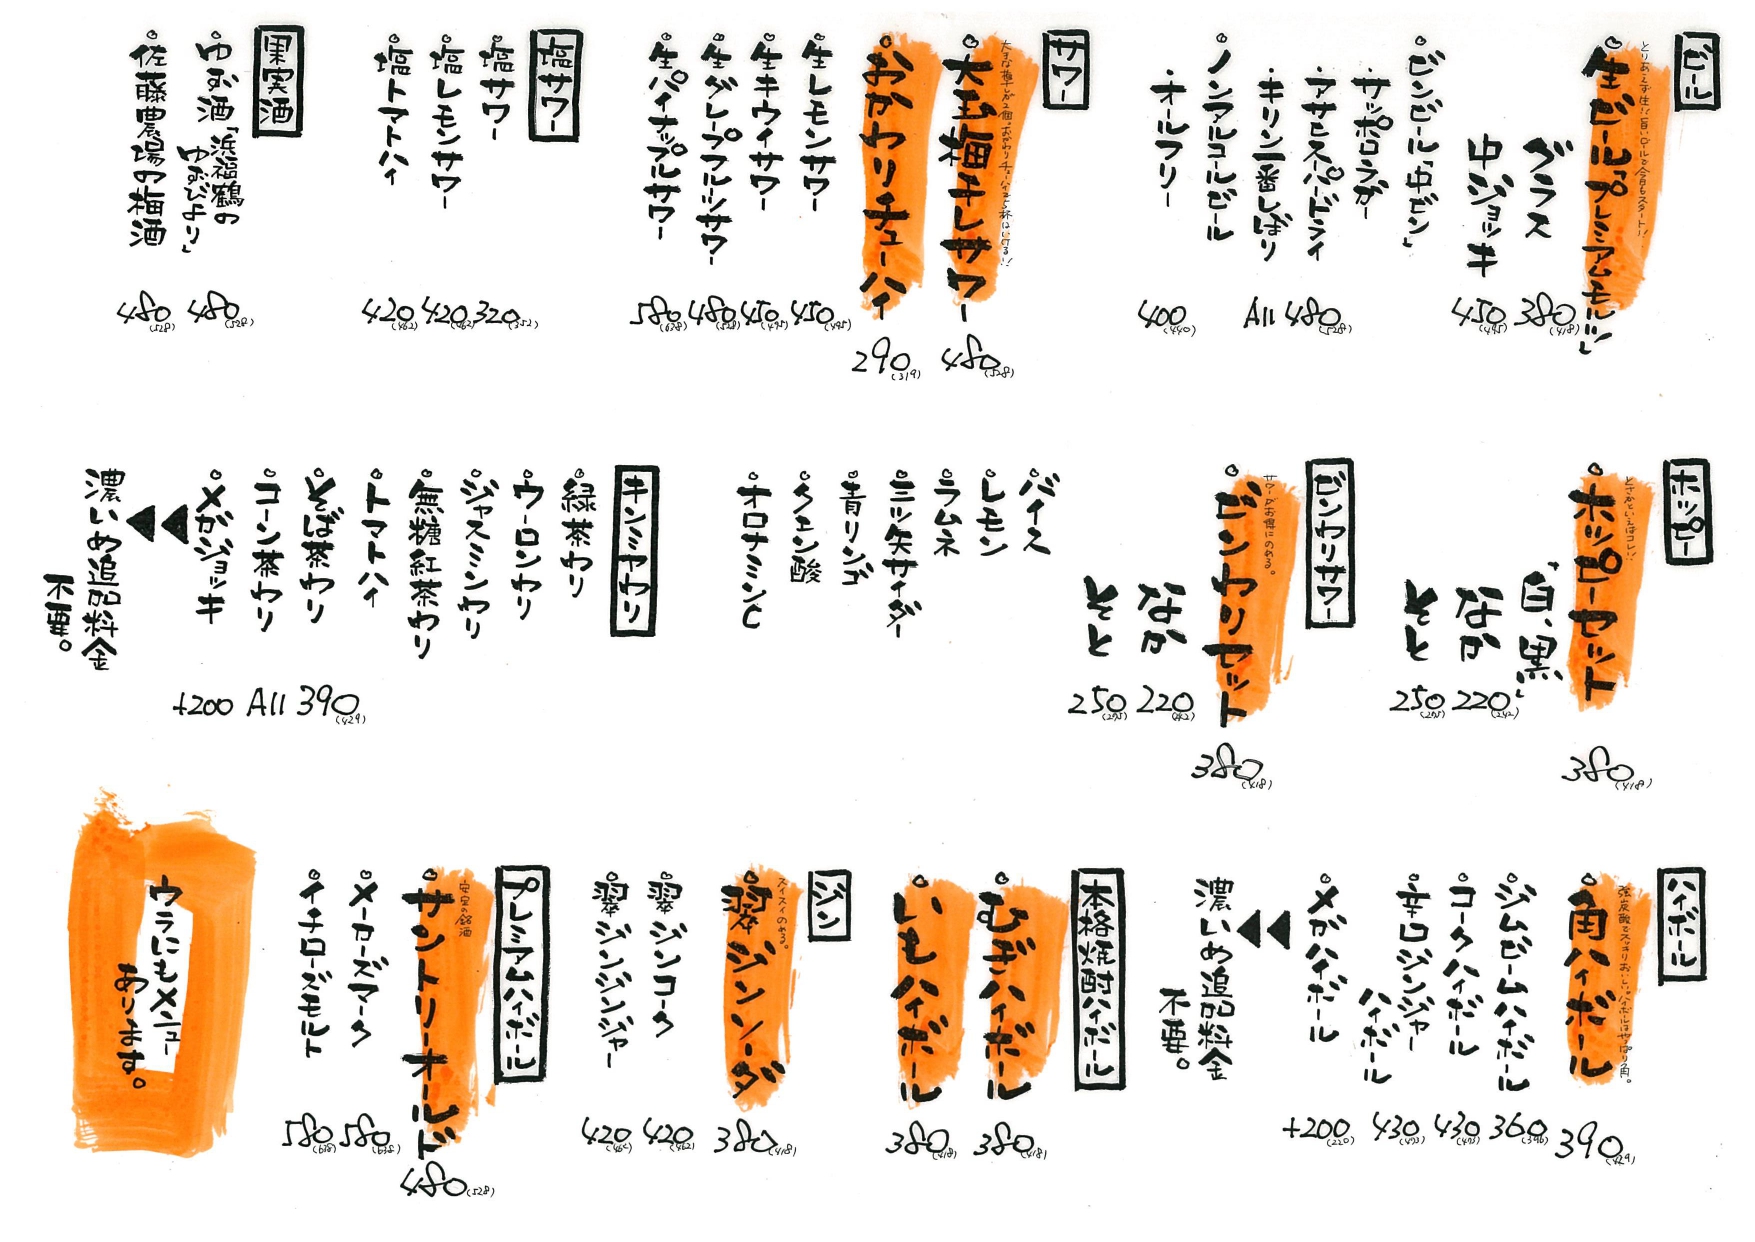 ビール
とりあえず生!!
生ビール「プレミアムモルツ」
グラス 380(418)
中ジョッキ 450(495)
ビンビール「中ビン」
・サッポロラガー
・アサヒスーパードライ
・キリン一番しぼり
All 480(528)
ノンアルコールビール
・オールフリー 400(440)
サワー
大玉梅干しサワー 480(528)
おかわりチューハイ 290(319)
生レモンサワー 450(495)
生キウイサワー 450(495)
生グレープフルーツサワー 480(528)
生パイナップルサワー 580(638)
塩サワー
塩サワー 320(352)
塩レモンサワー 420(462)
塩トマトハイ 420(462)
果実酒
ゆず酒「浜福鶴の
ゆずびより」 480(528)
佐藤農場の梅酒 480(528)
ホッピー
ホッピーセット 380(418)
"白、黒"
なか 220(242)
そと 250(275)
ビンワリサワー
サワーがお得にのめる。
ビンワリセット 380(418)
なか 220(242)
そと 250(275)
バイス
レモン
ラムネ
三ツ矢サイダー
青リンゴ
クエン酸
オロナミンC
キンミヤワリ
緑茶ワリ
ウーロンワリ
ジャスミンワリ
無糖紅茶ワリ
トマトハイ
そば茶ワリ
コーン茶ワリ
All 390(429)
メガジョッキ +200
濃いめ追加料金
不要。
ハイボール
角ハイボール 390(429)
ジムビームハイボール 360(396)
コークハイボール 430(473)
辛口ジンジャー
ハイボール 430(473)
メガハイボール +200(220)
濃いめ追加料金
不要。
本格焼酎ハイボール
むぎハイボール 380(418)
いもハイボール 380(418)
ジン
スイスイのめる。
翠ジンソーダ 380(418)
翠ジンコーク 420(462)
翠ジンジンジャー 420(462)
プレミアムハイボール
安定の銘酒
サントリーオールド 480(528)
メーカーズマーク 580(638)
イチローズモルト 580(638)
ウラにもメニュー
あります。